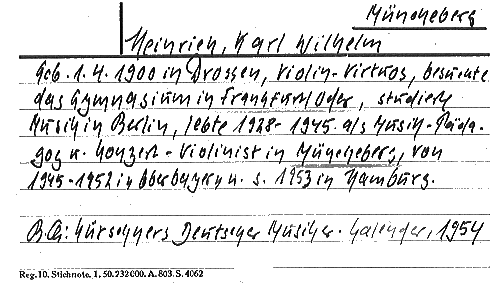 Müncheberg
Heinrich, Karl Wilhelm
Geb. 1.4.1900 in Drossen, Violin-Virtuos, besuchte
das Gymnasium in Frankfurt/Oder, studierte
Musik in Berlin, lebte 1928-1945 als Musik-Päda-
gog u. Konzert-Violinist in Müncheberg, von
1945-1952 in Oberbayern u. s. 1953 in Hamburg.
B.Q.: Kürschners Deutscher Musiker-Kalender, 1954
Reg. 10. Stichnote. 1, 50. 232 000. A. 803. S. 4062